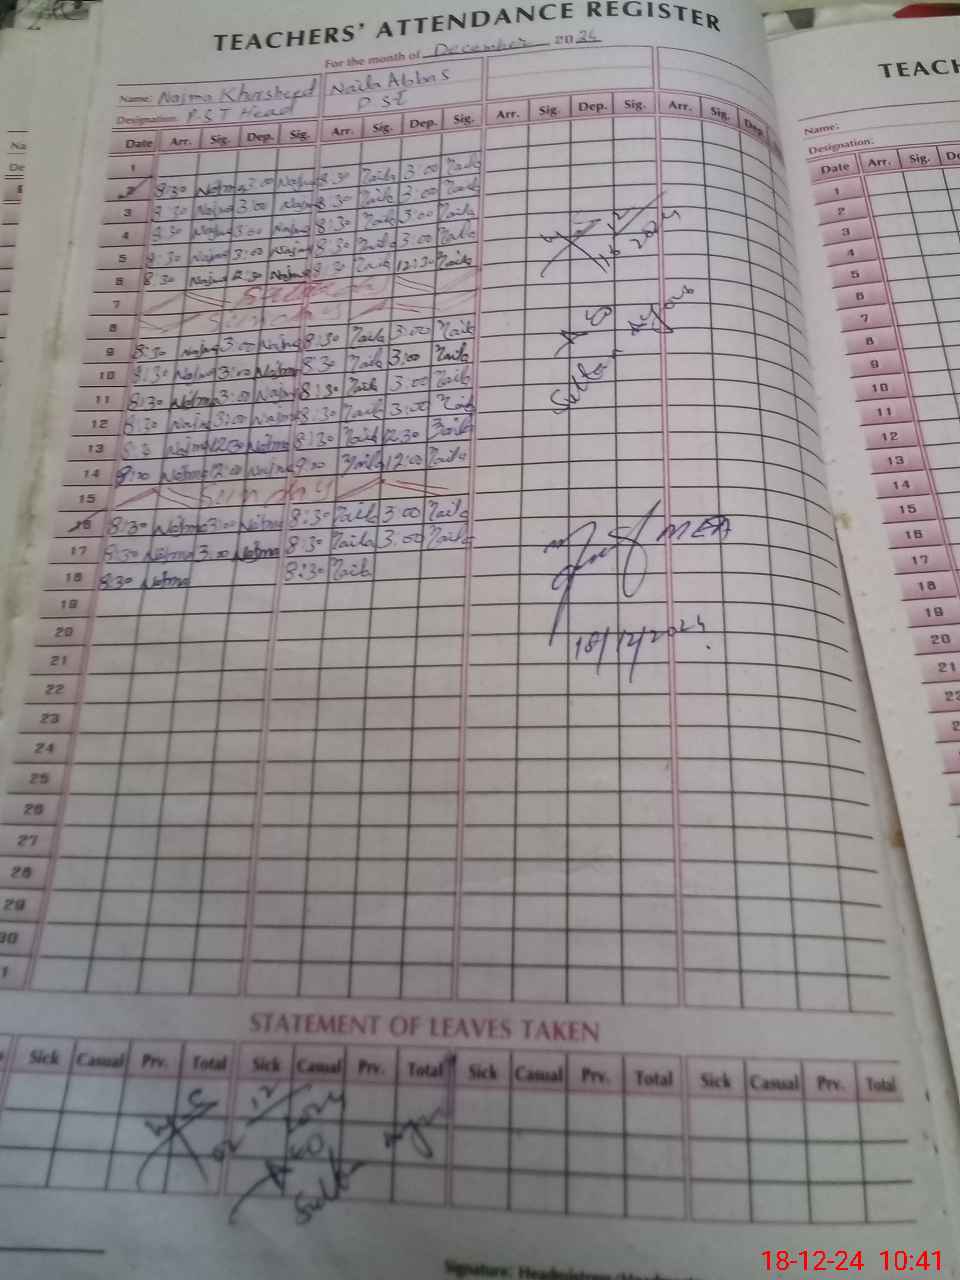 TEACHERS' ATTENDANCE REGISTER
For the month of December 2024
Name: Najma Khursheed Naila Abbas
Designation: P.S.T Head P S T
Date Arr. Sig. Dep. Sig. Arr. Sig. Dep. Sig. Arr. Sig. Dep. Sig. Arr. Sig. Dep.
1
2 8:30 Najma 3:00 Najma 8:30 Naila 3:00 Naila
3 8:30 Najma 3:00 Najma 8:30 Naila 3:00 Naila
4 8:30 Najma 3:00 Najma 8:30 Naila 3:00 Naila
5 8:30 Najma 3:00 Najma 8:30 Naila 3:00 Naila
6 8:30 Najma 12:30 Najma 8:30 Naila 12:30 Naila
7
8 Sunday
9 8:30 Najma 3:00 Najma 8:30 Naila 3:00 Naila
10 8:30 Najma 3:00 Najma 8:30 Naila 3:00 Naila
11 8:30 Najma 3:00 Najma 8:30 Naila 3:00 Naila
12 8:30 Najma 3:00 Najma 8:30 Naila 3:00 Naila
13 8:30 Najma 12:30 Najma 8:30 Naila 12:30 Naila
14 9:00 Najma 12:00 Najma 9:00 Naila 12:00 Naila
15 Sunday
16 8:30 Najma 3:00 Najma 8:30 Naila 3:00 Naila
17 8:30 Najma 3:00 Najma 8:30 Naila 3:00 Naila
18 8:30 Najma 8:30 Naila
16 12 2024
AEO
MEA
18/12/2024
19
20
21
22
23
24
25
26
27
28
29
30
STATEMENT OF LEAVES TAKEN
Sick Casual Prv. Total Sick Casual Prv. Total Sick Casual Prv. Total Sick Casual Prv. Total
02 12 2024
AEO
Signature:
Name:
Designation:
Date Arr. Sig.
1
2
3
4
5
6
7
8
9
10
11
12
13
14
15
16
17
18
19
20
21
18-12-24 10:41